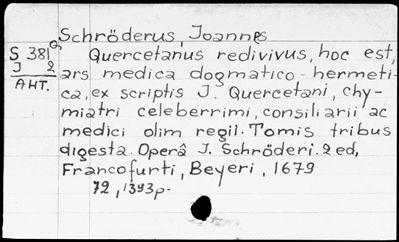 Schröderus, Joannes
S 381
J 2
AHT.
Quercetanus redivivus, hoc est,
ars medica dogmatico-hermeti-
ca, ex scriptis J. Quercetani, chy-
miatri celeberrimi, consiliarii ac
medici olim regii. Tomis tribus
digesta. Operâ J. Schröderi. 2 ed,
Francofurti, Beyeri, 1679
72, 1393p.